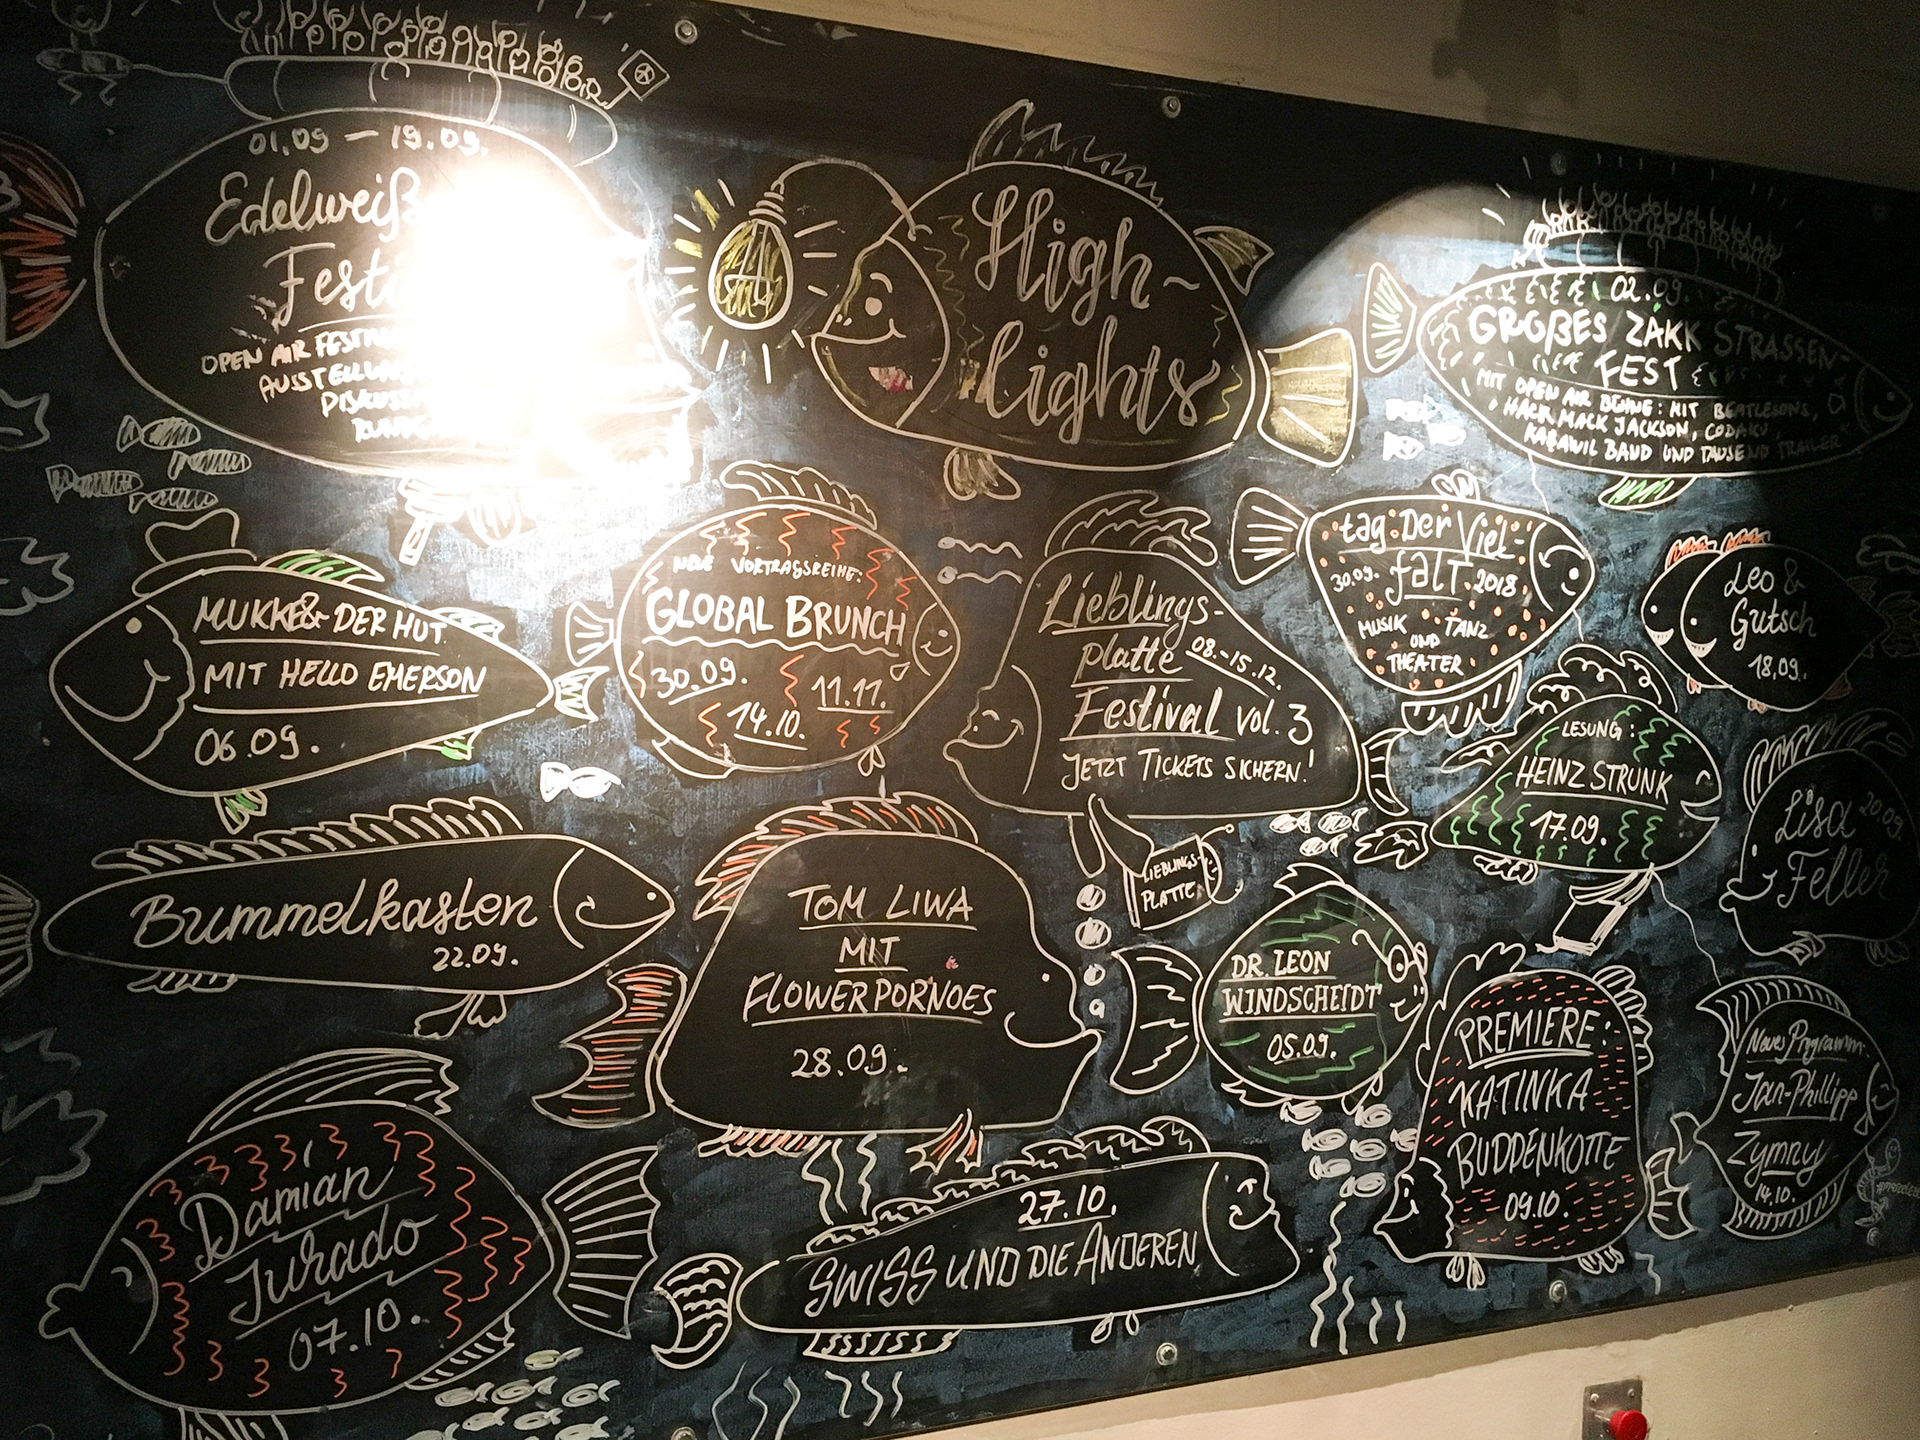 01.09 – 19.09.
Edelweiß
OPEN AIR
High-
lights
02.09.
GROẞES ZAKK STRASSEN-
FEST
MIT OPEN AIR BÜHNE: MIT BEATLESØNS,
MACK JACKSON, CODAKU,
KABAWIL BAND UND TAUSEND TRAILER
MUKKE & DER HUT
MIT HELLO EMERSON
06.09.
NEUE VORTRAGSREIHE:
GLOBAL BRUNCH
30.09.
14.10.
11.11.
Lieblings-
platte 08.-15.12.
Festival vol. 3
JETZT TICKETS SICHERN!
LIEBLINGS-
PLATTE
tag Der Viel-
falt
30.09. 2018
MUSIK TANZ
UND
THEATER
Leo &
Gutsch
18.09.
LESUNG:
HEINZ STRUNK
17.09.
Lisa 20.09.
Feller
Bummelkasten
22.09.
TOM LIWA
MIT
FLOWERPORNOES
28.09.
DR. LEON
WINDSCHEIDT
05.09.
PREMIERE:
KATINKA
BUDDENKOTTE
09.10.
Neues Programm
Jan-Phillipp
Zymny
14.10.
Damian
Jurado
07.10.
27.10.
SWISS UND DIE ANDEREN